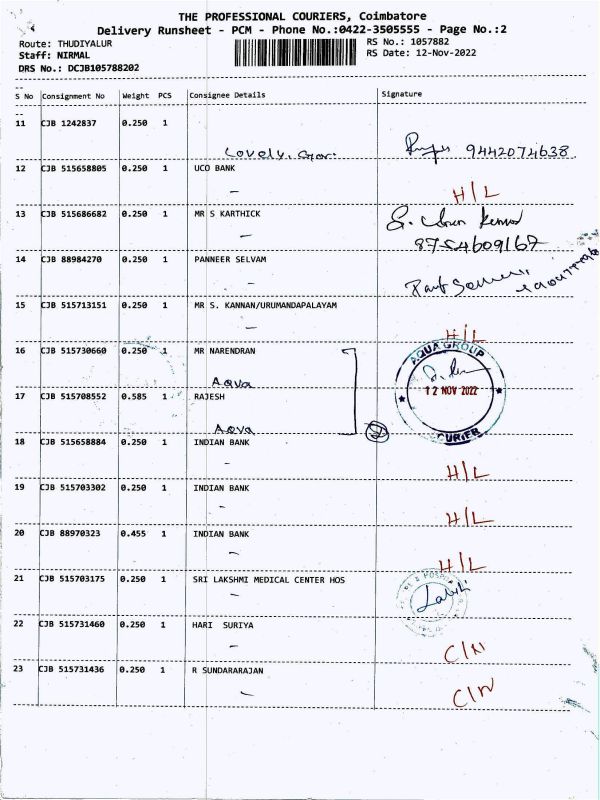 THE PROFESSIONAL COURIERS, Coimbatore
Delivery Runsheet - PCM - Phone No.:0422-3505555 - Page No.:2
Route: THUDIYALUR
RS No.: 1057882
Staff: NIRMAL
RS Date: 12-Nov-2022
DRS No.: DCJB105788202
S No Consignment No Weight PCS Consignee Details Signature
11 CJB 1242837 0.250 1
Lovely. 9442074638
12 CJB 515658805 0.250 1 UCO BANK
H/L
13 CJB 515686682 0.250 1 MR S KARTHICK
8754609167
14 CJB 88984270 0.250 1 PANNEER SELVAM
15 CJB 515713151 0.250 1 MR S. KANNAN/URUMANDAPALAYAM
H/L
16 CJB 515730660 0.250 1 MR NARENDRAN
AQUA GROUP
Aqva
12 NOV 2022
17 CJB 515708552 0.585 1 RAJESH
Aqva
COURIER
2
18 CJB 515658884 0.250 1 INDIAN BANK
H/L
19 CJB 515703302 0.250 1 INDIAN BANK
H/L
20 CJB 88970323 0.455 1 INDIAN BANK
H/L
21 CJB 515703175 0.250 1 SRI LAKSHMI MEDICAL CENTER HOS
22 CJB 515731460 0.250 1 HARI SURIYA
C/N
23 CJB 515731436 0.250 1 R SUNDARARAJAN
C/N